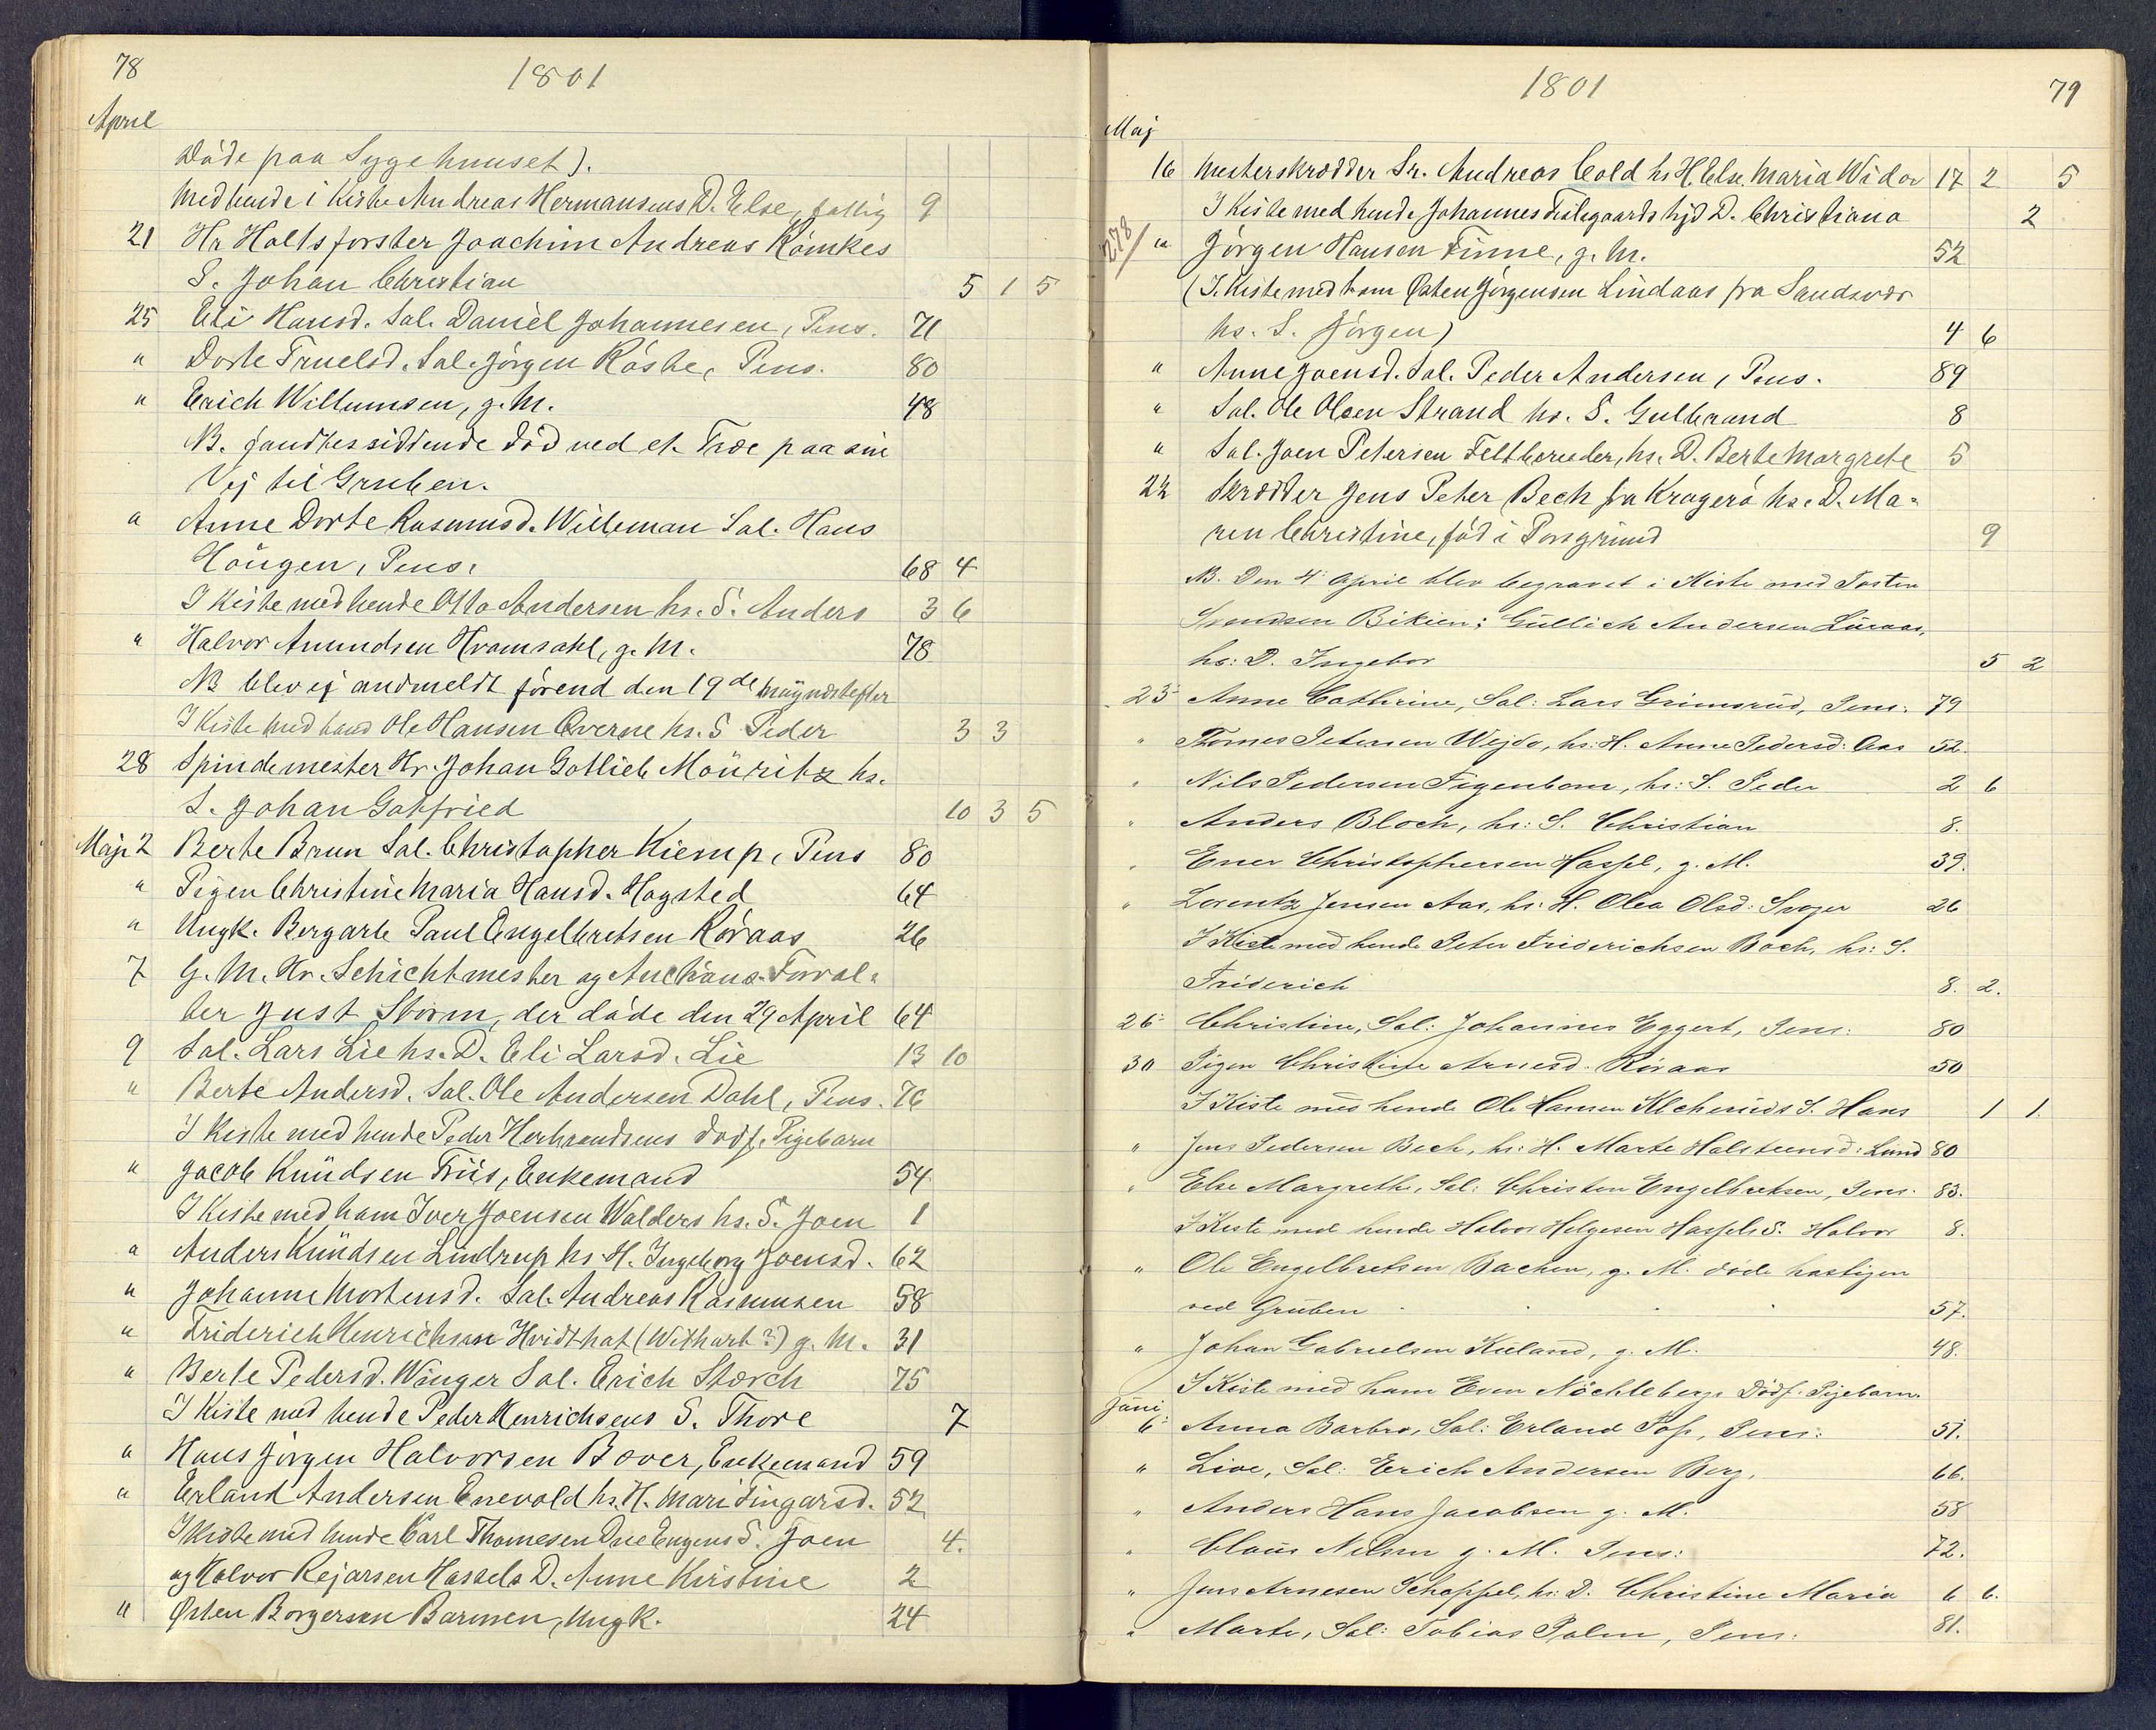 78
1801
April
Døde paa Sygehuuset).
Med hende i Kiste Andreas Hermansens D. Else, fattig 9
21 Hr Holtsforster Joachim Andreas Römkes
S. Johan Christian 5 1 5
25 Eli Hansd. Sal. Daniel Johannesen, Pens. 71
" Dorte Truelsd. Sal. Jörgen Röste, Pens. 80
" Erich Willumsen, g. M. 48
NB. fandtes siddende död ved et Træ paa sin
Vej til Gruben.
" Anne Dorte Rasmusd. Willeman Sal. Hans
Höugen, Pens. 68 4
I Kiste med hende Otto Andersen hs. S. Anders 3 6
" Halvor Amundsen Hvamsahl, g. M. 78
NB blev ej andmeldt förend den 19de
I Kiste med ham Ole Hansen Qverne hs. S Peder 3 3
28 Spindemester Hr. Johan Gotlieb Möuritz hs.
S. Johan Gotfried 10 3 5
Maji 2 Berte Brun Sal. Christopher Kiemp, Pens 80
" Pigen Christine Maria Hansd. Hogsted 64
" Ungk. Bergarb Paul Engelbretsen Röraas 26
7 G. M. Hr. Schichtmester og Auctions-Forval-
ter Just Storm, der döde den 29 April 64
9 Sal. Lars Lie hs. D. Eli Larsd. Lie 13 10
" Berte Andersd. Sal. Ole Andersen Dahl, Pens. 76
I Kiste med hende Peder Herbrandsens dödf. Pigebarn
" Jacob Knüdsen Friis, Enkemand 54
I Kiste med ham Iver Joensen Walders hs. S. Joen 1
" Anders Knüdsen Lindrup hs. H. Ingeborg Joensd. 62
" Johanne Mortensd. Sal. Andreas Rasmusen 58
" Friderich Henrichsen Hvidthat (Witharb?) g. M. 31
" Berte Pedersd. Winger Sal. Erich Storch 75
I Kiste med hende Peder Henrichsens S. Thore 7
" Hans Jörgen Halvorsen Bover, Enkemand 59
" Erland Andersen Enevold hs. H. Mari Fingarsd. 52
I Kiste med hende Carl Thomesen S. Joen 4.
og Halvor Rejarsen Hassels D. Anne Kirstine 2
" Østen Borgersen Barmen, Ungk. 24
1801
79
Maj
16 Mesterskrædder Sr. Andreas Cold hs H. Else Maria Widor 17 2 5
I Kiste med hende Johannes Teilegaards hjd D. Christiana 2
278/
" Jörgen Hansen Finne, g. M. 52
(I. Kiste med ham Østen Jörgensen Lindaas fra Sandsvær
hs. S. Jörgen) 4 6
" Anne Joensd. Sal. Peder Andersen, Pens. 89
" Sal. Ole Olsen Strand hs. S. Gulbrand 8
" Sal. Joen Petersen Feltbereder, hs. D. Berte Margrete 5
22 Skrædder Jens Peter Bech fra Kragerö hs. D. Ma-
ren Christine, föd i Porsgrund 9
NB. Den 4' April blev begravet i Kiste med Tosten
Svendsen Bikien: Gullich Andersen Luraas,
hs: D. Ingebor 5 2
23 Anne Cathrine, Sal: Lars Grimsrud, Pens: 79
" Thomes Petersen Wejdo, hs: H. Anne Pedersd: Aas 52.
" Nils Pedersen Figenbom, hs: S. Peder 2 6
" Anders Bloch, hs: S. Christian 8.
" Ener Christophersen Hassel, g. M. 39.
" Lorentz Jensen Aas, hs: H. Olea Olsd: Svager 26
I Kiste med hende Peter Friderichsen Boch, hs: S.
Friderich 8. 2.
26 Christine, Sal: Johannes Eggert, Pens: 80
30 Pigen Christine Arnesd. Röraas 50
I Kiste med hende Ole Hansen S. Hans 1 1.
" Jens Pedersen Bech, hs: H. Marte Halsteensd: Lund 80
" Else Margrethe, Sal: Christen Engelbretsen, Pens. 83.
I Kiste med hende Halvor Helgesen Hassels S. Halvor 8.
" Ole Engelbretsen Bachen, g. M. döde hastigen
ved Gruben 57.
" Johan Gabrielsen Kuland, g. M. 48.
I Kiste med ham Even Nöchleberg Dödf. Pigebarn.
Juni
6 Anna Barbro, Sal: Erland Poss, Pens: 51.
" Live, Sal: Erich Andersen Berg, 66.
" Anders Hans Jacobsen g. M. 58
" Claus Nilsen g. M. Pens: 72.
" Jens Arnesen Schoppel, hs: D. Christine Maria 6 6.
" Marte, Sal: Tobias Palm, Pens: 81.